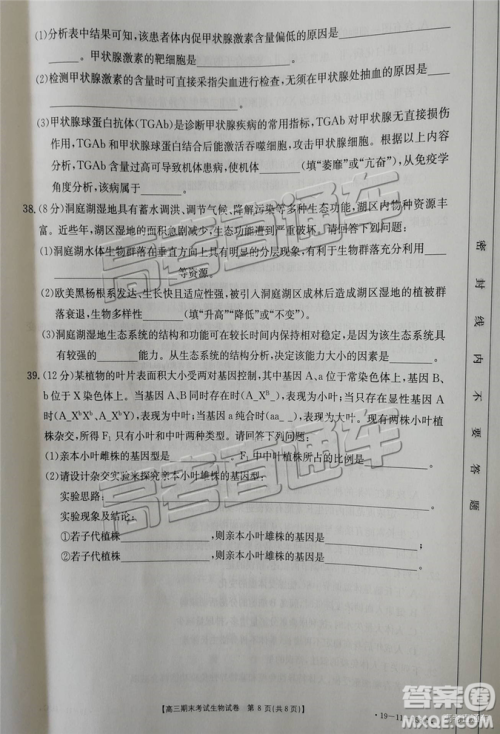 (1)分析表中结果可知,该患者体内促甲状腺激素含量偏低的原因是
。甲状腺激素的靶细胞是 。
(2)检测甲状腺激素的含量时可直接采指尖血进行检查,无须在甲状腺处抽血的原因是
。
(3)甲状腺球蛋白抗体(TGAb)是诊断甲状腺疾病的常用指标,TGAb对甲状腺无直接损伤
作用,TGAb和甲状腺球蛋白结合后能激活吞噬细胞,攻击甲状腺细胞。由此可以
分析,TGAb含量过高可导致机体患病,使机体 (填“萎靡”或“亢奋”),从免疫学
角度分析,该病属于 。
38.(8分)洞庭湖湿地具有蓄水调洪、调节气候、降解污染等多种生态功能,湖区内物种资源丰
富。近些年,湖区湿地的面积急剧减少,生态功能遭到严重破坏。请回答下列问题:
(1)洞庭湖水体生物群落在垂直方向上具有明显的分层现象,有利于生物群落充分利用
等资源。
(2)欧美黑杨根系发达、生长快、吸水能力强,被引入洞庭湖区成林后造成湖区湿地的植被
衰退,导致生物多样性 (填“升高”“降低”或“不变”)。
(3)洞庭湖湿地生态系统的结构和功能可在较长时间内保持相对稳定,是因为生态系统具有
一定的 能力。从生态系统的功能分析,决定该能力大小的因素是 。
39.(12分)某植物的叶片表面积大小受两对基因控制,其中基因A、a位于常染色体上,基因B、
b位于X染色体上。基因A和B同时存在(A_Xᴮ_)时,表现为大叶;当只有显性基因A存
在时(A_XᵇXᵇ、A_XᵇY)表现为中叶;当基因a纯合时(aa__),表现为小叶。现有两株小叶
植株杂交,所得F₁中只有大叶和中叶两种类型。请回答下列问题:
(1)亲本小叶雌株的基因型是 ,F₁中中叶植株所占的比例是 。
(2)请设计杂交实验来探究亲本小叶雄株的基因型:
实验思路:
实验现象及结论:
①若子代植株 ,则亲本小叶雄株的基因型是 ;
②若子代植株 ,则亲本小叶雄株的基因型是 。
【高三期末考试生物试卷 第8页(共8页)】
密封线内不要答题
高考直通车
高考直通车